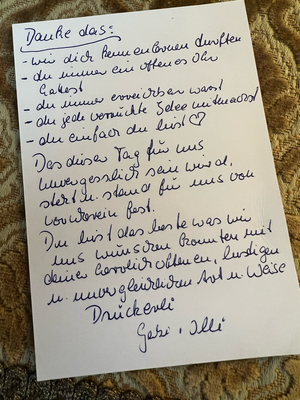 Danke das:
- wir dich kennenlernen durften
- du immer ein offenes Ohr
hattest
- du immer erreichbar warst
- du jede verrückte Idee mitmachst
- du einfach du bist ♡
Das dieser Tag für uns
unvergesslich sein wird,
steht u. stand für uns von
vornherein fest.
Du bist das beste was wir
uns wünschen konnten mit
deiner herzlich offenen, lustigen
u. unvergleichlichen Art u. Weise
Drückerli
Gabi,